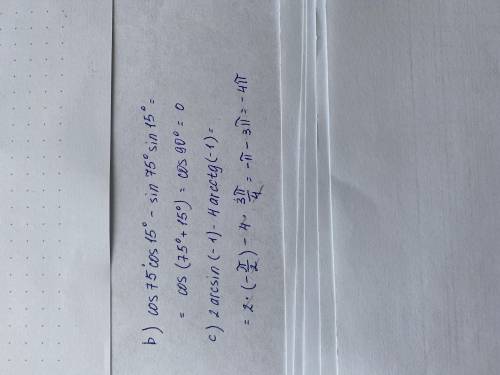 b) cos 75° cos 15° - sin 75° sin 15° =
= cos (75° + 15°) = cos 90° = 0
c) 2 arcsin (-1) - 4 arcctg (-1) =
= 2 · (-π/2) - 4 · 3π/4 = -π - 3π = -4π